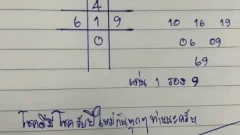 4
6 1 9 10 16 19
0 06 09
69
เด่น 1 รอง 9
โชคดีมีโชครับปีใหม่กันทุกๆท่านนะครับ